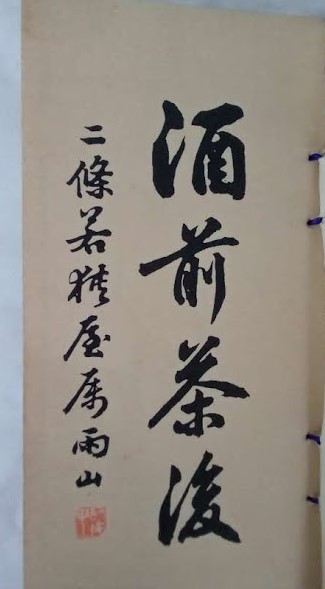 酒前茶後
二條若狹屋属雨山